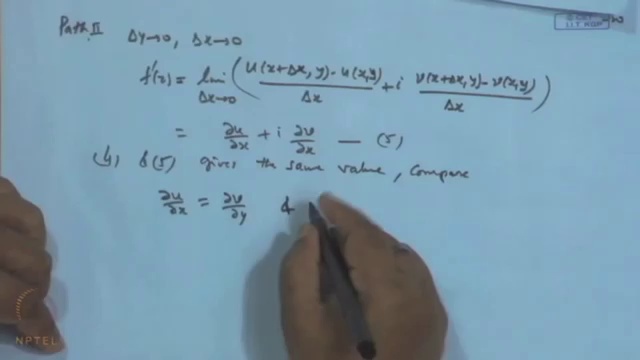 Path II Δy→0, Δx→0
f'(z) = lim Δx→0 ( u(x+Δx, y) - u(x,y) / Δx + i v(x+Δx, y) - v(x,y) / Δx )
= ∂u/∂x + i ∂v/∂x — (5)
(4) & (5) gives the same value, compare
∂u/∂x = ∂v/∂y &
NPTEL